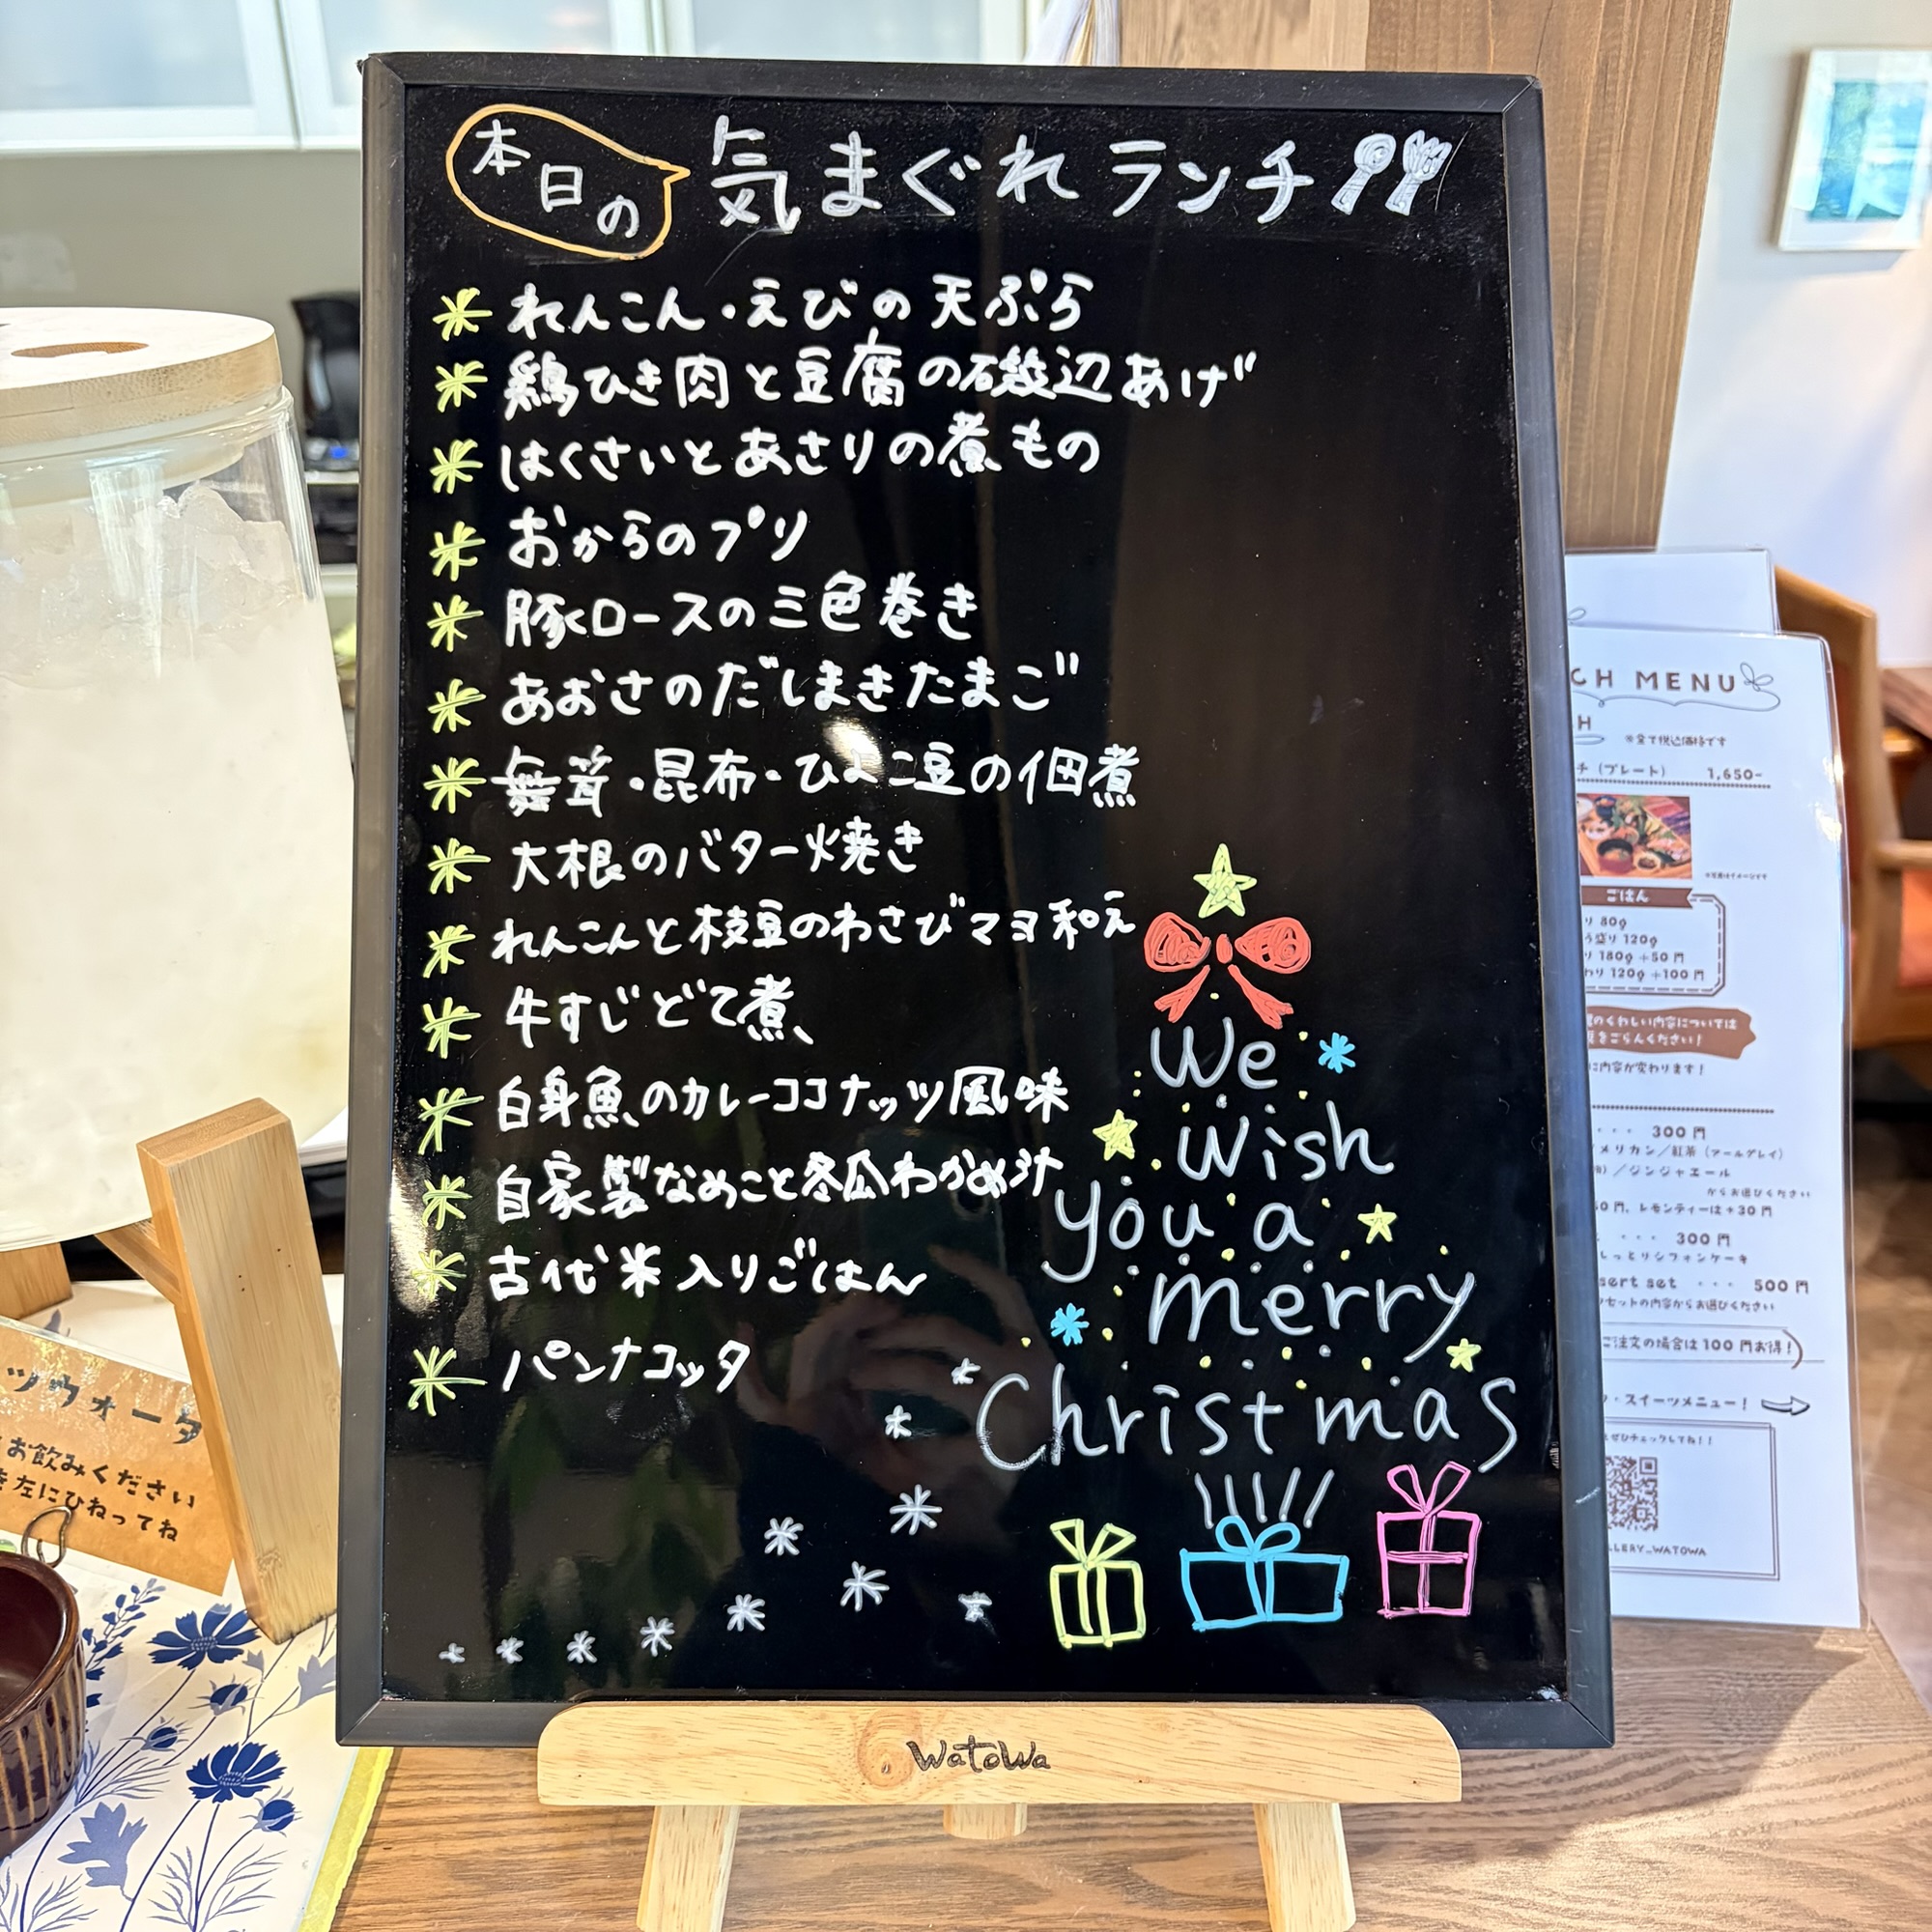 本日の 気まぐれランチ
れんこん・えびの天ぷら
鶏ひき肉と豆腐の磯辺あげ
はくさいとあさりの煮もの
おからのプリ
豚ロースの三色巻き
あおさのだしまきたまご
舞茸・昆布・ひよこ豆の佃煮
大根のバター焼き
れんこんと枝豆のわさびマヨ和え
牛すじどて煮
白身魚のカレーココナッツ風味
自家製なめこと冬瓜わかめ汁
古代米入りごはん
パンナコッタ
We
wish
you a
merry
Christmas
WatoWa
ツウォータ
お飲みください
左にひねってね
CH MENU
H
※全て税込価格です
チ(プレート) 1,650-
※写真はイメージです
ごはん
り 80g
う盛り 120g
り 180g +50円
わり 120g +100円
のくわしい内容については
をごらんください!
に内容が変わります!
・・・ 300円
メリカン/紅茶(アールグレイ)
/ジンジャエール
からお選びください
50円、レモンティーは+30円
・・・ 300円
しっとりシフォンケーキ
sert set ・・・ 500円
セットの内容からお選びください
ご注文の場合は100円お得!
・スイーツメニュー!
ぜひチェックしてね!!
LLERY_WATOWA